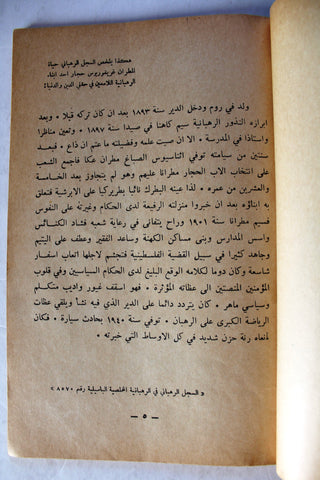 هكذا يلخص السجل الرهباني حياة
المطران غريغوريوس حجار احد ابناء
الرهبانية اللامعين في حقلي الدين والدنيا:
ولد في روم ودخل الدير سنة ١٨٩٣ بعد ان كان تركه قبلا . وبعد
ابرازه النذور الرهبانية سيم كاهنا في صيدا سنة ١٨٩٧ وتعين مناظرا
واستاذا في المدرسة . الا ان صيت علمه وفضيلته ما عتم ان ذاع . فبعد
سنتين من سيامته توفي اثناسيوس الصباغ مطران عكا فاجمع الشعب
على انتخاب الاب الحجار مطرانا عليهم وهو لم يتجاوز بعد الخامسة
والعشرين من عمره . لذا عينه البطرك نائبا بطريركيا على الابرشية فتعلق
به ابناؤه بعد ان خبروا منزلته الرفيعة لدى الحكام وغيرته على النفوس
فسيم مطرانا سنة ١٩٠١ وراح يتفانى في رعاية شعبه فشاد الكنائس
واسس المدارس وبنى مساكن الكهنة وساعد الفقير وعطف على اليتيم
وجاهد كثيرا في سبيل القضية الفلسطينية فتجشم لاجلها اتعاب اسفار
شاسعة وكان دوما لكلامه الوقع البليغ لدى الحكام السياسيين وفي قلوب
المؤمنين المتعطشين الى عظاته المؤثرة . فهو اسقف غيور واديب متكلم
وسياسي ماهر . كان يتردد دائما على الدير الذي فيه نشأ ويلقي عظات
الرياضة الكبرى على الرهبان . توفي سنة ١٩٤٠ بحادث سيارة . فكان
لمنعاه رنة حزن شديد في كل الاوساط التي خبرته .
« السجل الرهباني في الرهبانية المخلصية الباسيلية رقم ٨٥٧٠ »
— ٥ —